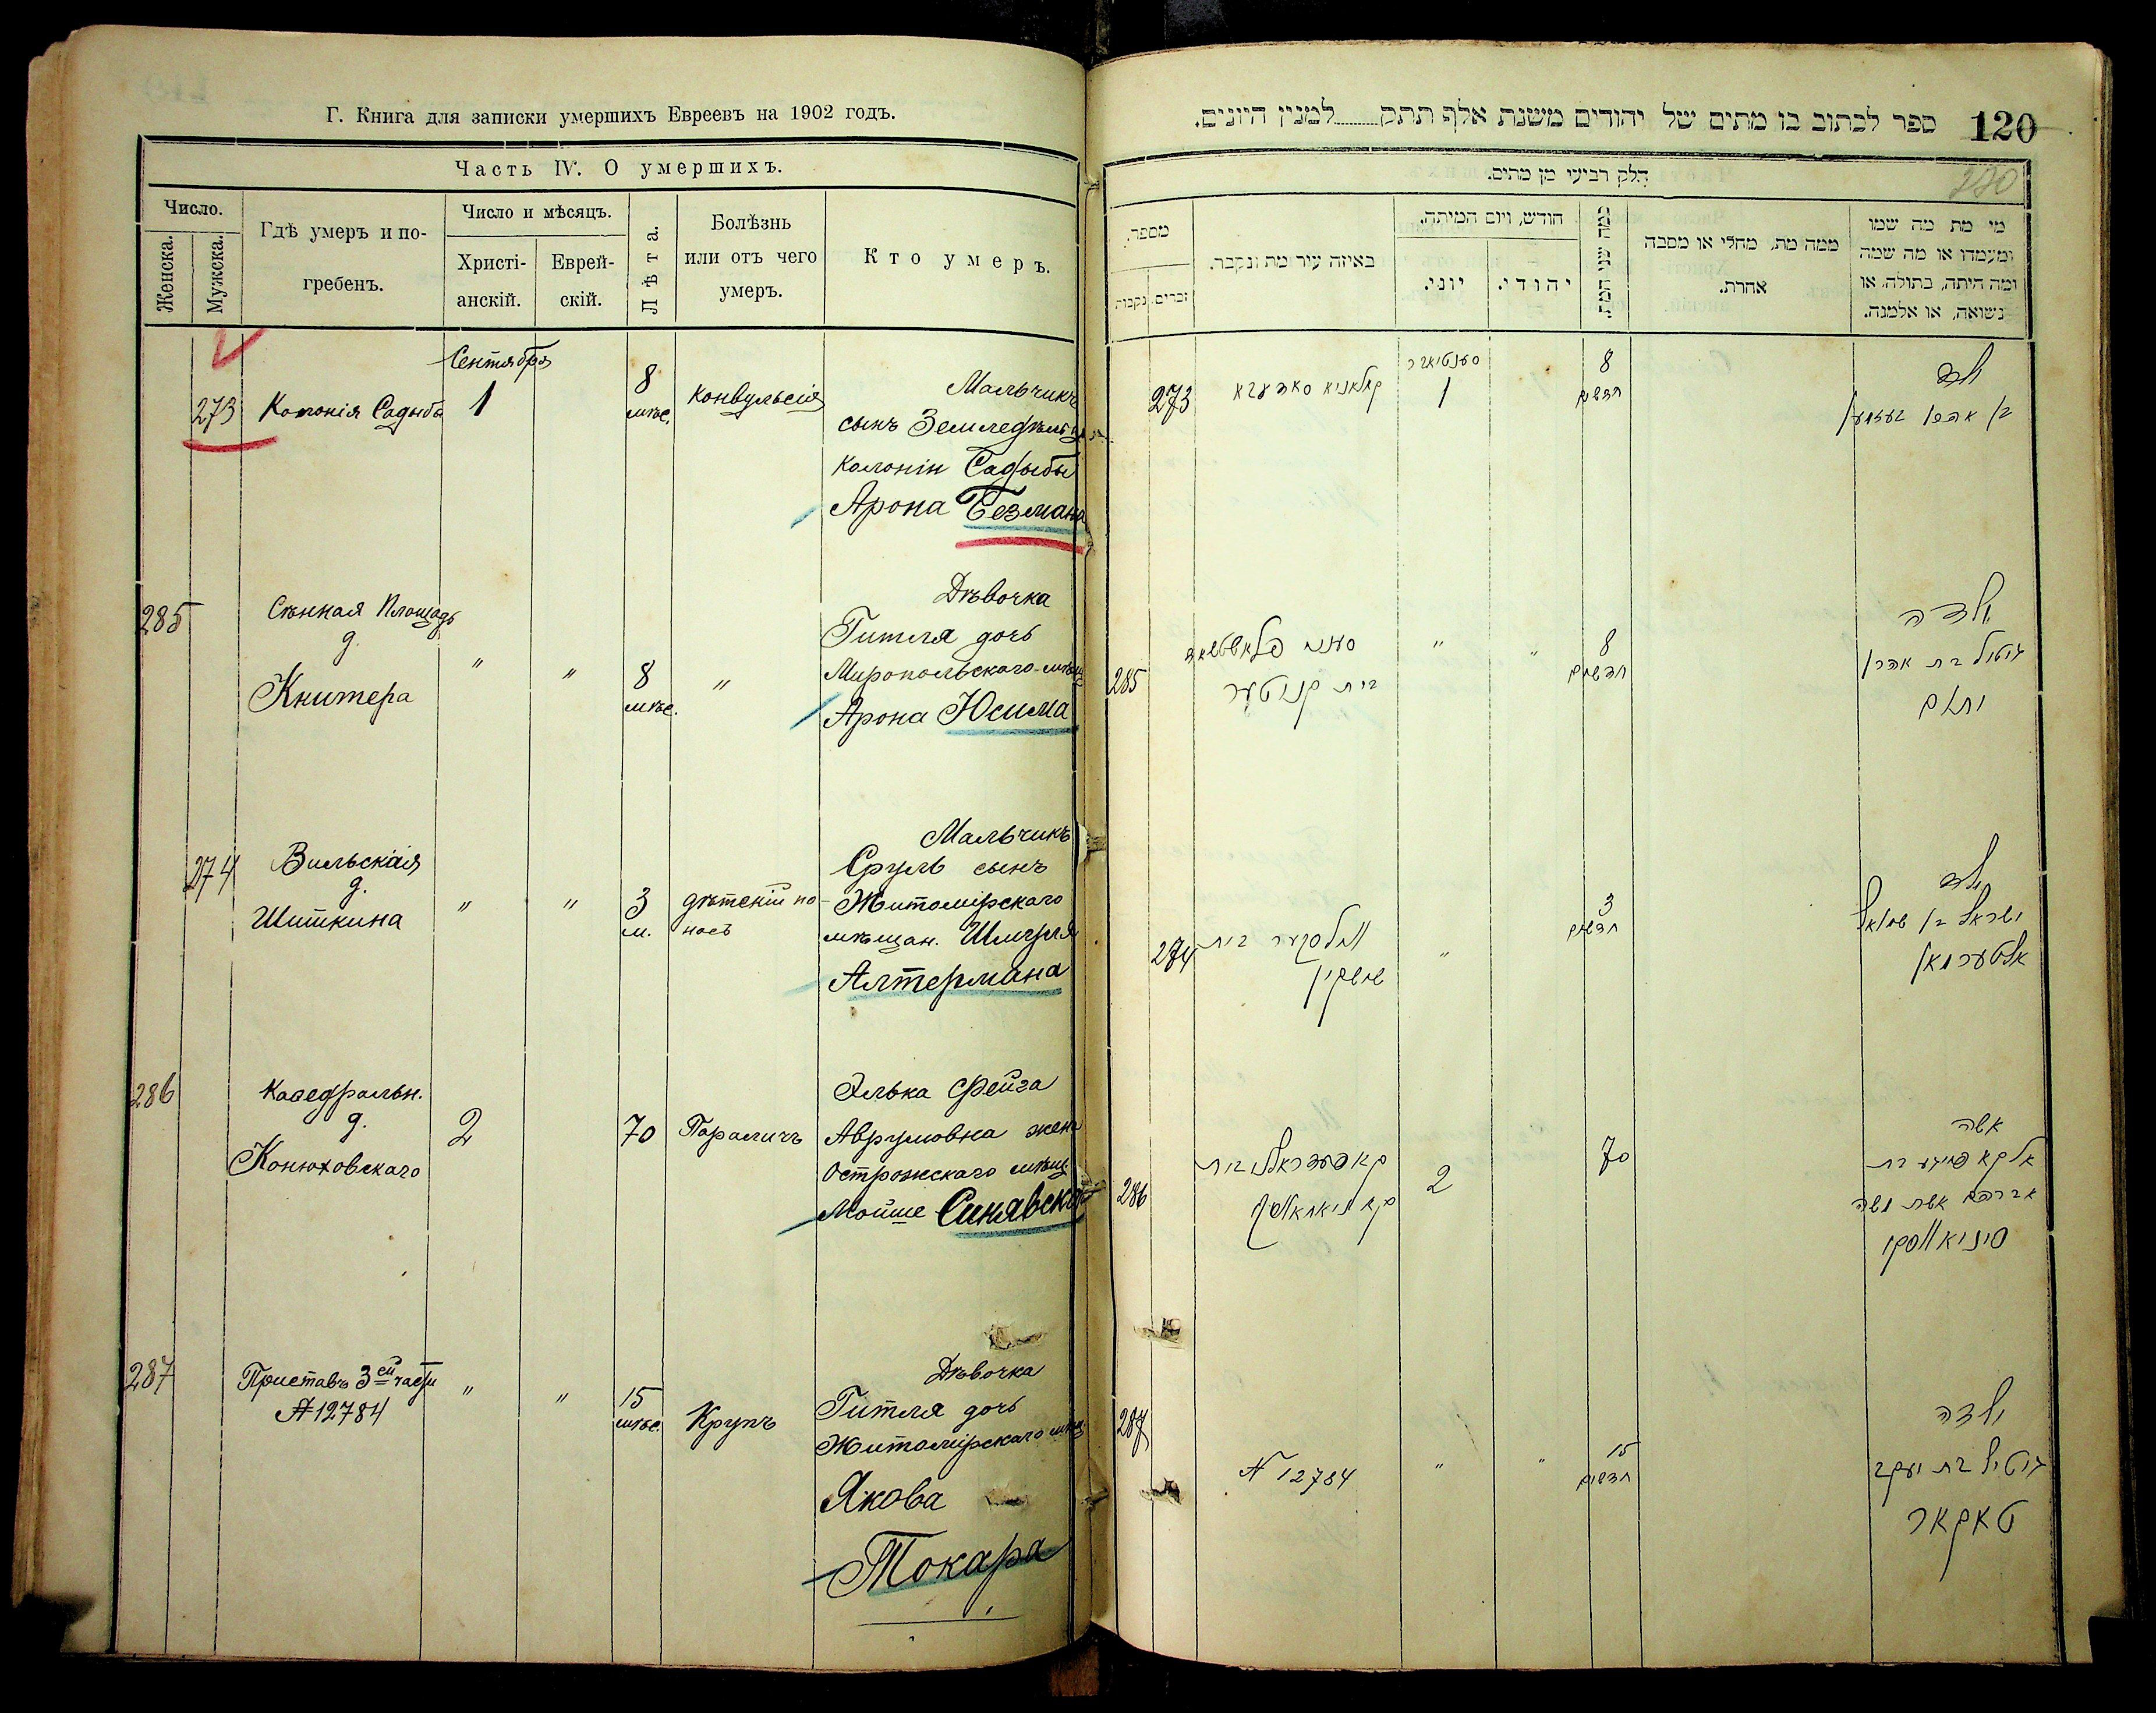 Г. Книга для записки умершихъ Евреевъ на 1902 годъ.
Часть IV. О умершихъ.
Число.
Женска.
Мужска.
Гдѣ умеръ и по-
гребенъ.
Число и мѣсяцъ.
Христі-
анскій.
Еврей-
скій.
Лѣта.
Болѣзнь
или отъ чего
умеръ.
Кто умеръ.
Сентября
273 Колонія Садыба 1 8 мѣс. Конвульсія
Мальчикъ
сынъ Земледѣльца
колоніи Садыбы
Арона Безмана
285
Сѣнная Площадь
д.
Книтера
" " 8 мѣс. "
Дѣвочка
Гитля дочь
Миропольскаго мѣщ
Арона Юсима
274
Вильская
д.
Шиткина
" " 3 м. дѣтскій по-
носъ
Мальчикъ
Сруль сынъ
Житомірскаго
мѣщан. Шмуля
Алтермана
286
Каѳедральн.
д.
Конюховскаго
2 70 Параличъ
Элька Фейга
Аврумовна жена
Острожскаго мѣщ
Мойше Синявска
287
Приставъ 3ей части
№ 12784
" " 15 мѣс. Крупъ
Дѣвочка
Гитля дочь
Житомірскаго мѣщ.
Якова
Токара
120
ספר לכתוב בו מתים של יהודים משנת אלף תתק........למנין היונים.
חלק רביעי מן מתים.
מספר.
נקבות
זכרים.
באיזה עיר מת ונקבר.
חודש, ויום המיתה.
יוני.
יהודי.
כמה שני המת.
ממה מת, מחלי או מסבה
אחרת.
מי מת מה שמו
ומעמדו או מה שמה
ומה היתה, בתולה, או
נשואה, או אלמנה.
סענטיאבר
273 קאלאניא סאדעבא 1 8
חדשים
ילד
בן אהרן בעזמאן
285
סענא פלאשטשאד
בית קניטער
" " 8
חדשים
ילדה
גיטיל בת אהרן
יוסים
274
ווילסקער בית
שיטקין
" 3
חדשים
ילד
ישראל בן שמואל
אלטערמאן
286
קאפעדראלני בית
קאניאחאווסקי
2 70
אשה
אלקא פייגע בת
אברהם אשת משה
סיניאווסקי
287
N 12784 " " 15
חדשים
ילדה
גיטיל בת יעקב
טאקאר